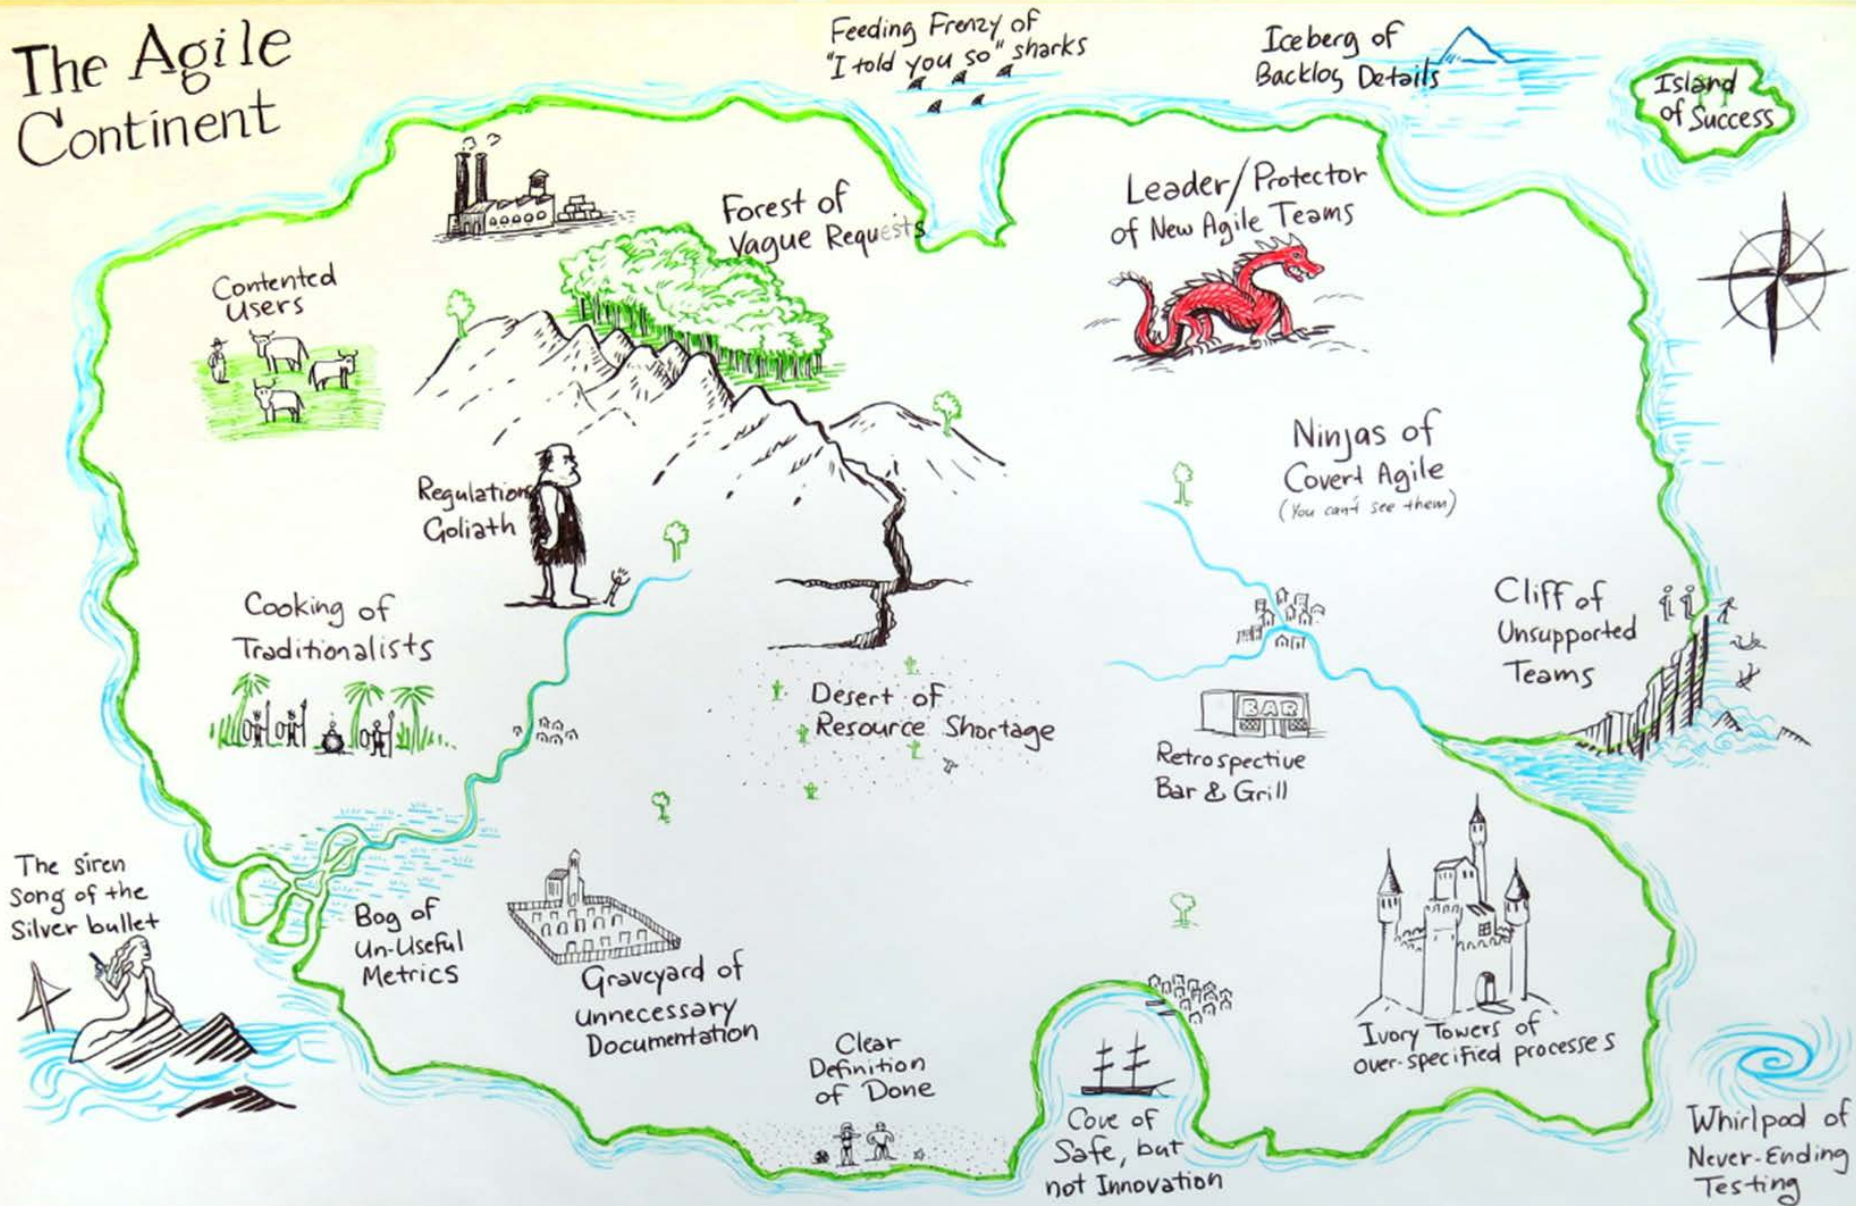 The Agile
Continent
Feeding Frenzy of
"I told you so" sharks
Iceberg of
Backlog Details
Island
of Success
Forest of
Vague Requests
Leader/Protector
of New Agile Teams
Contented
Users
Ninjas of
Covert Agile
(You can't see them)
Regulation
Goliath
Cooking of
Traditionalists
Cliff of
Unsupported
Teams
Desert of
Resource Shortage
BAR
Retrospective
Bar & Grill
The siren
Song of the
Silver bullet
Bog of
Un-Useful
Metrics
Graveyard of
unnecessary
Documentation
Clear
Definition
of Done
Cove of
Safe, but
not Innovation
Ivory Towers of
over-specified processes
Whirlpool of
Never-Ending
Testing